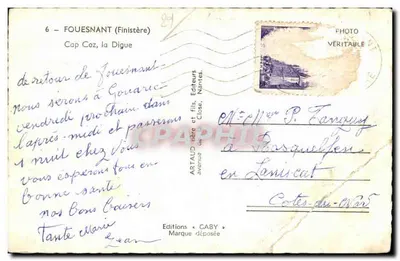 6 - FOUESNANT (Finistère)
Cap Coz, la Digue
PHOTO
VÉRITABLE
de retour de Fouesnant
nous serons à Gouarec
vendredi prochain dans
l'après-midi et passerons
1 nuit chez Vous
vous espérons tous en
bonne santé
nos bons baisers
Tante Marie
Jean
ARTAUD père et fils, Editeurs
avenue de la Close, Nantes.
Mr Mme P. Tanguy
à Rosquelfen
en Laniscat
Côtes-du-Nord
Editions "GABY"
Marque déposée